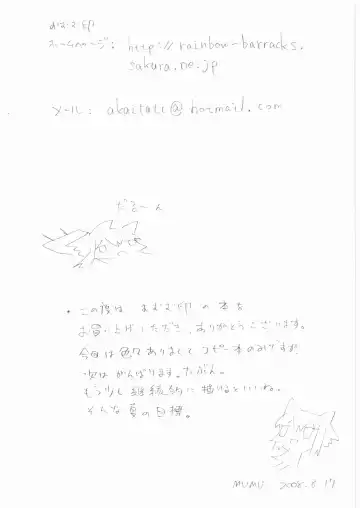 おむ2印
ホームページ: http://rainbow-barracks.
sakura.ne.jp
メール: akaitati@hotmail.com
だるーん
・この度は おむ2印の本を
お買い上げいただき、ありがとうございます。
今回は色々ありましてコピー本のみですが
次はがんばります。たぶん。
もう少し継続的に描けるといいね。
そんな夏の目標。
MUMU 2008.8.17